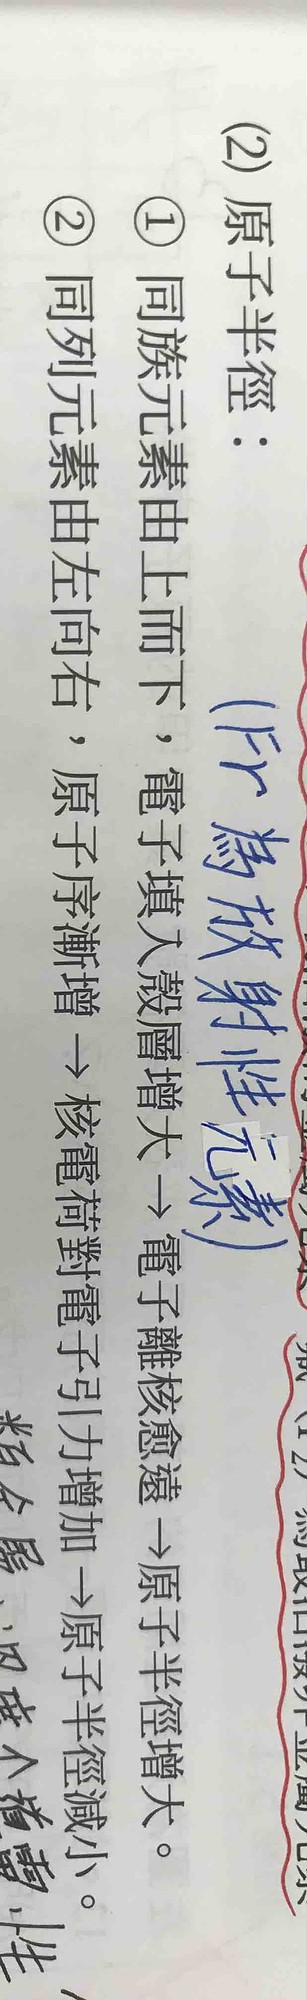 (2) 原子半徑：
(Fr 為放射性元素)
① 同族元素由上而下，電子填入殼層增大 → 電子離核愈遠 → 原子半徑增大。
② 同列元素由左向右，原子序漸增 → 核電荷對電子引力增加 → 原子半徑減小。